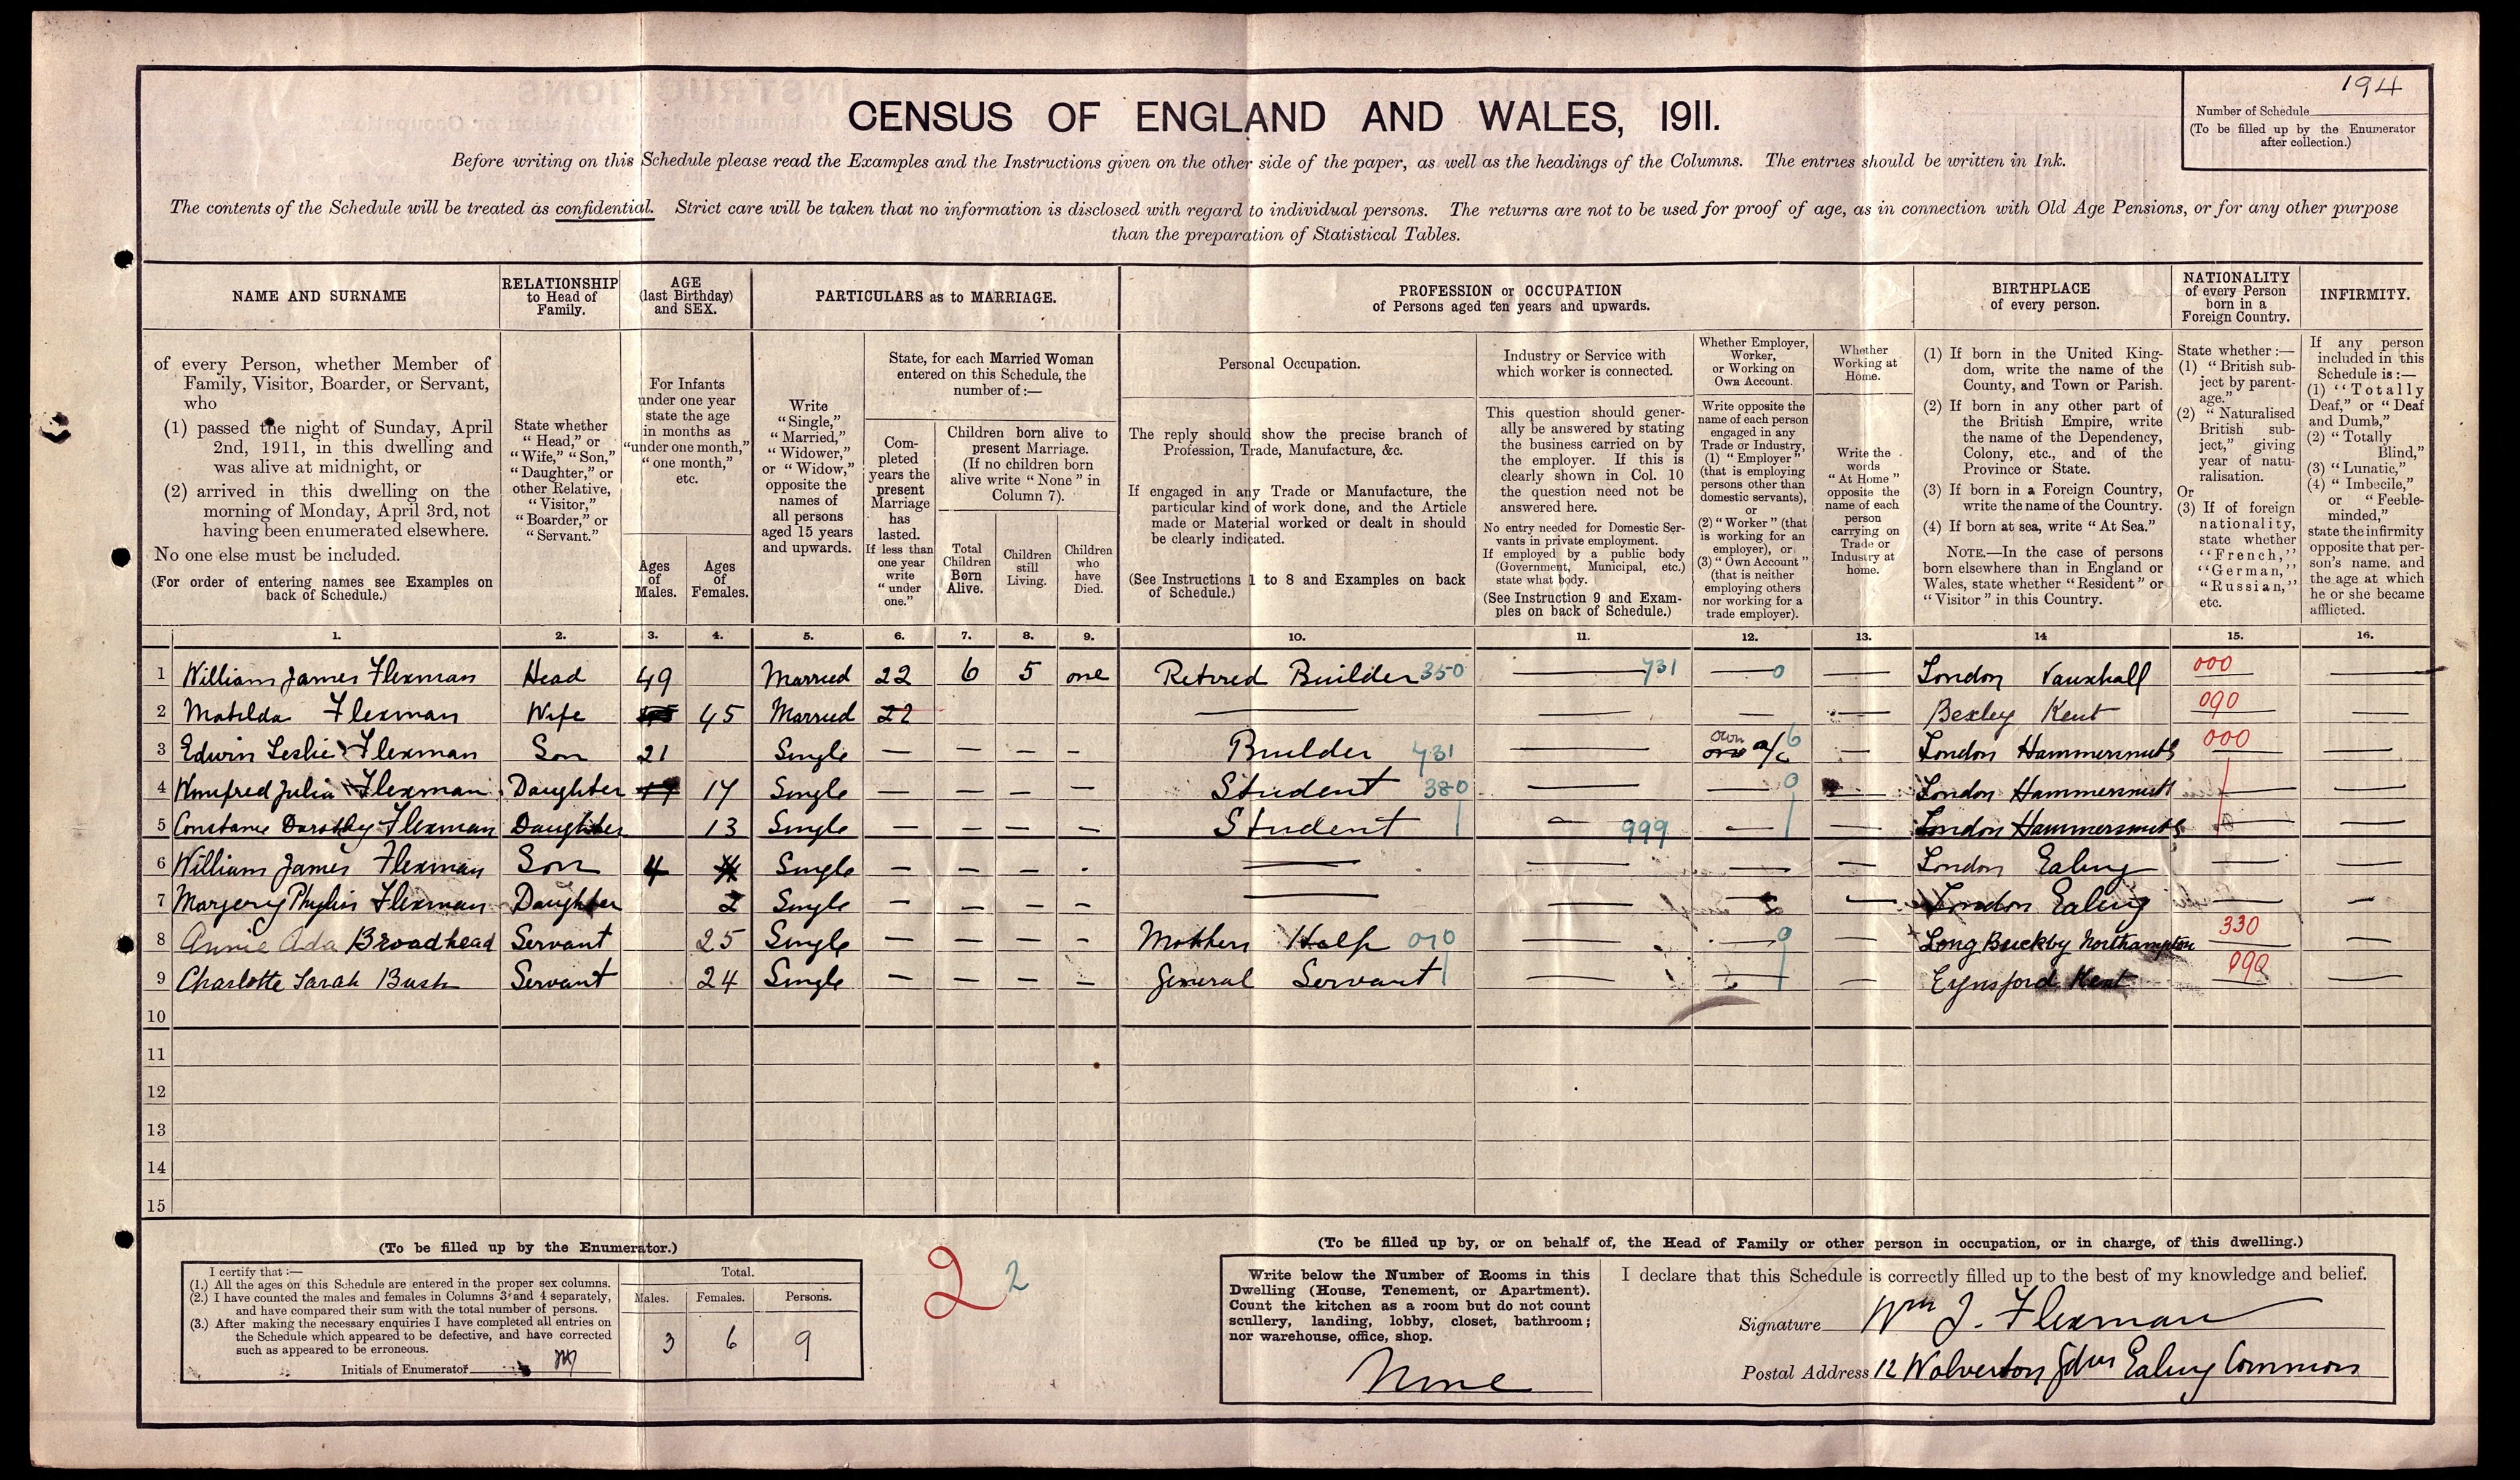 194
Number of Schedule
(To be filled up by the Enumerator
after collection.)
CENSUS OF ENGLAND AND WALES, 1911.
Before writing on this Schedule please read the Examples and the Instructions given on the other side of the paper, as well as the headings of the Columns. The entries should be written in Ink.
The contents of the Schedule will be treated as confidential. Strict care will be taken that no information is disclosed with regard to individual persons. The returns are not to be used for proof of age, as in connection with Old Age Pensions, or for any other purpose
than the preparation of Statistical Tables.
NAME AND SURNAME
of every Person, whether Member of
Family, Visitor, Boarder, or Servant,
who
(1) passed the night of Sunday, April
2nd, 1911, in this dwelling and
was alive at midnight, or
(2) arrived in this dwelling on the
morning of Monday, April 3rd, not
having been enumerated elsewhere.
No one else must be included.
(For order of entering names see Examples on
back of Schedule.)
RELATIONSHIP
to Head of
Family.
State whether
"Head," or
"Wife," "Son,"
"Daughter," or
other Relative,
"Visitor,"
"Boarder," or
"Servant."
AGE
(last Birthday)
and SEX.
For Infants
under one year
state the age
in months as
"under one month,"
"one month,"
etc.
Ages
of
Males.
Ages
of
Females.
PARTICULARS as to MARRIAGE.
Write
"Single,"
"Married,"
"Widower,"
or "Widow,"
opposite the
names of
all persons
aged 15 years
and upwards.
State, for each Married Woman
entered on this Schedule, the
number of:—
Com-
pleted
years the
present
Marriage
has
lasted.
If less than
one year
write
"under
one."
Children born alive to
present Marriage.
(If no children born
alive write "None" in
Column 7).
Total
Children
Born
Alive.
Children
still
Living.
Children
who
have
Died.
PROFESSION or OCCUPATION
of Persons aged ten years and upwards.
Personal Occupation.
The reply should show the precise branch of
Profession, Trade, Manufacture, &c.
If engaged in any Trade or Manufacture, the
particular kind of work done, and the Article
made or Material worked or dealt in should
be clearly indicated.
(See Instructions 1 to 8 and Examples on back
of Schedule.)
Industry or Service with
which worker is connected.
This question should gener-
ally be answered by stating
the business carried on by
the employer. If this is
clearly shown in Col. 10
the question need not be
answered here.
No entry needed for Domestic Ser-
vants in private employment.
If employed by a public body
(Government, Municipal, etc.)
state what body.
(See Instruction 9 and Exam-
ples on back of Schedule.)
Whether Employer,
Worker,
or Working on
Own Account.
Write opposite the
name of each person
engaged in any
Trade or Industry,
(1) "Employer"
(that is employing
persons other than
domestic servants),
or
(2) "Worker" (that
is working for an
employer), or
(3) "Own Account"
(that is neither
employing others
nor working for a
trade employer).
Whether
Working at
Home.
Write the
words
"At Home"
opposite the
name of each
person
carrying on
Trade or
Industry at
home.
BIRTHPLACE
of every person.
(1) If born in the United King-
dom, write the name of the
County, and Town or Parish.
(2) If born in any other part of
the British Empire, write
the name of the Dependency,
Colony, etc., and of the
Province or State.
(3) If born in a Foreign Country,
write the name of the Country.
(4) If born at sea, write "At Sea."
NOTE.—In the case of persons
born elsewhere than in England or
Wales, state whether "Resident" or
"Visitor" in this Country.
NATIONALITY
of every Person
born in a
Foreign Country.
State whether:—
(1) "British sub-
ject by parent-
age."
(2) "Naturalised
British sub-
ject," giving
year of natu-
ralisation.
Or
(3) If of foreign
nationality,
state whether
"French,"
"German,"
"Russian,"
etc.
INFIRMITY.
If any person
included in this
Schedule is:—
(1) "Totally
Deaf," or "Deaf
and Dumb,"
(2) "Totally
Blind,"
(3) "Lunatic,"
(4) "Imbecile,"
or "Feeble-
minded,"
state the infirmity
opposite that per-
son's name, and
the age at which
he or she became
afflicted.
1. 2. 3. 4. 5. 6. 7. 8. 9. 10. 11. 12. 13. 14 15. 16.
1 William James Flexman Head 49 Married 22 6 5 one Retired Builder 350 731 0 London Vauxhall 000
2 Matilda Flexman Wife 45 Married 22 Bexley Kent 090
3 Edwin Leslie Flexman Son 21 Single — — — — Builder 731 own a/c 6 London Hammersmith 000
4 Winifred Julia Flexman Daughter 17 Single — — — — Student 380 0 London Hammersmith
5 Constance Dorothy Flexman Daughter 13 Single — — — — Student 999 London Hammersmith
6 William James Flexman Son 4 Single — — — London Ealing
7 Margery Phyllis Flexman Daughter 2 Single — — — — London Ealing
8 Annie Ada Broadhead Servant 25 Single — — — — Mothers Help 010 0 Long Buckby Northampton 330
9 Charlotte Sarah Bush Servant 24 Single — — — — General Servant Eynsford Kent 090
10
11
12
13
14
15
(To be filled up by the Enumerator.)
I certify that:—
(1.) All the ages on this Schedule are entered in the proper sex columns.
(2.) I have counted the males and females in Columns 3 and 4 separately,
and have compared their sum with the total number of persons.
(3.) After making the necessary enquiries I have completed all entries on
the Schedule which appeared to be defective, and have corrected
such as appeared to be erroneous.
Initials of Enumerator
Total.
Males. Females. Persons.
3 6 9
2 2
(To be filled up by, or on behalf of, the Head of Family or other person in occupation, or in charge, of this dwelling.)
Write below the Number of Rooms in this
Dwelling (House, Tenement, or Apartment).
Count the kitchen as a room but do not count
scullery, landing, lobby, closet, bathroom;
nor warehouse, office, shop.
Nine
I declare that this Schedule is correctly filled up to the best of my knowledge and belief.
Signature Wm J. Flexman
Postal Address 12 Wolverton Gdns Ealing Common